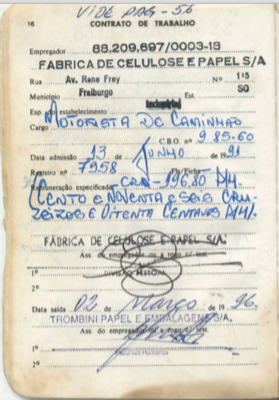 VIDE PAG-56
16 CONTRATO DE TRABALHO
88.209.697/0003-18
Empregador
FABRICA DE CELULOSE E PAPEL S/A
Rua Av. Rene Frey Nº 115
Município Fraiburgo Est. SC
Esp. do estabelecimento Industrial
Cargo MOTORISTA DE CAMINHÃO
C.B.O. nº 9 85-60
Data admissão 13 de JUNHO de 1991
Registro nº 7958 Fls/Ficha
Remuneração especificada CR$-196,80 P/H.
(CENTO E NOVENTA E SEIS CRU-
ZEIROS E OITENTA CENTAVOS P/H).
FÁBRICA DE CELULOSE E PAPEL S/A.
Ass. do empregador ou a rogo c/ test.
1º DIVISÃO PESSOAL
2º
Data saída 02 de Março de 1996.
TROMBINI PAPEL E EMBALAGENS S/A.
Ass. do empregador ou a rogo c/ test.
1º
Recursos Humanos
2º